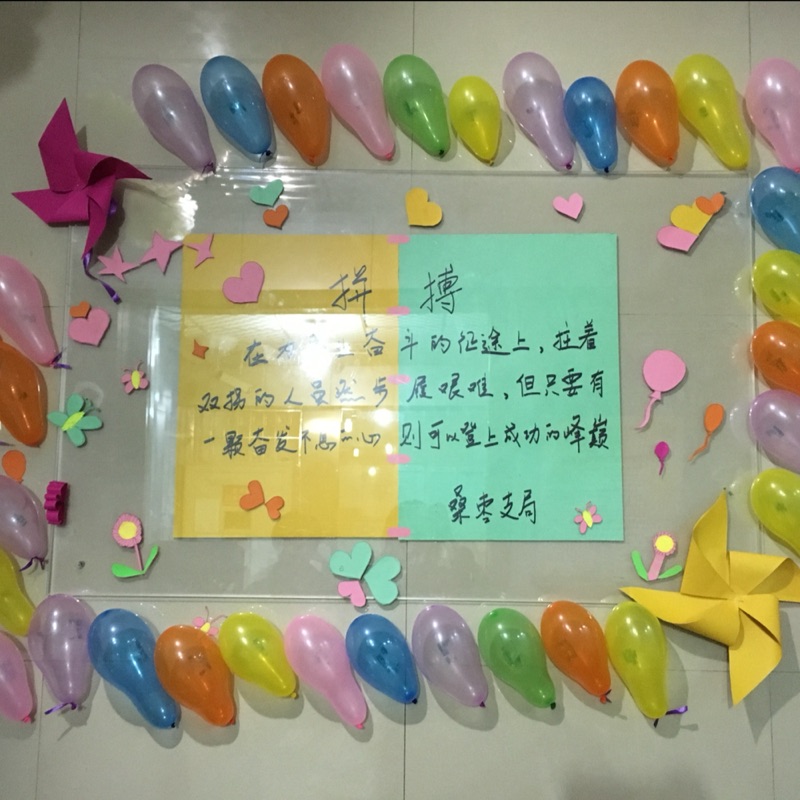 拼 搏
在 奋斗的征途上，拄着
双拐的人虽然步履艰难，但只要有
一颗奋发不息的心 则可以登上成功的峰巅
桑枣支局